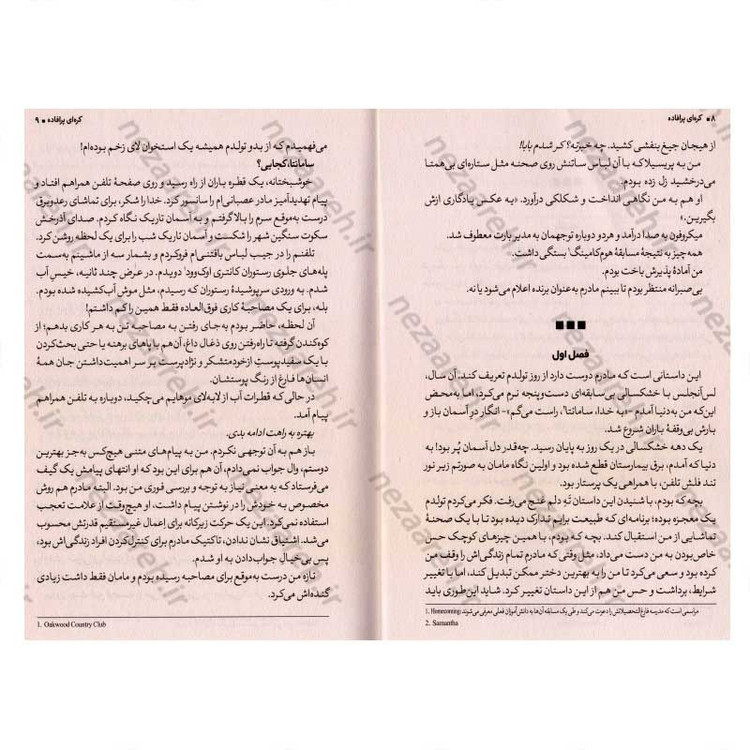 ۸ ■ کره‌ای پرافاده
از هیجان جیغ بنفشی کشید. چه خبرته؟ کر شدم بابا!
من به پریسیلا که با آن لباس ساتنش روی صحنه مثل ستاره‌ای بی‌همتا
می‌درخشید زل زده بودم.
او هم به من نگاهی انداخت و شکلکی درآورد. «یه عکس یادگاری ازش
بگیرین.»
میکروفون به صدا درآمد و هر دو دوباره توجهمان به مدیر بارت معطوف شد.
همه‌چیز به نتیجهٔ مسابقهٔ هوم‌کامینگ۱ بستگی داشت.
من آمادهٔ پذیرش باخت بودم.
بی‌صبرانه منتظر بودم تا ببینم مادرم به‌عنوان برنده اعلام می‌شود یا نه.
■■■
فصل اول
این داستانی است که مادرم دوست دارد از روز تولدم تعریف کند. آن سال،
لس‌آنجلس با خشکسالی بی‌سابقه‌ای دست‌وپنجه نرم می‌کرد، اما به‌محض
این‌که من به‌دنیا آمدم -«به خدا، سامانتا۲، راست می‌گم»- انگار درِ آسمان باز و
بارش بی‌وقفهٔ باران شروع شد.
یک دهه خشکسالی در یک روز به پایان رسید. چه‌قدر دل آسمان پُر بود! به
دنیا که آمدم، برق بیمارستان قطع شده بود و اولین نگاه مامان به صورتم زیر نور
تند فلش تلفن، با همراهی یک پرستار بود.
بچه که بودم، با شنیدن این داستان تهِ دلم غنج می‌رفت. فکر می‌کردم تولدم
یک معجزه بوده؛ برنامه‌ای که طبیعت برایم تدارک دیده بود تا با یک صحنهٔ
تماشایی از من استقبال کند. بچه که بودم، با همین چیزهای کوچک حس
خاص‌بودن به من دست می‌داد، مثل وقتی که مادرم تمام زندگی‌اش را وقف من
کرده بود و سعی می‌کرد تا من را به بهترین دختر ممکن تبدیل کند، اما با تغییر
شرایط، برداشت و حس من هم از این داستان تغییر کرد. شاید این‌طوری باید
1. Homecoming: مراسمی است که مدرسه فارغ‌التحصیلانش را دعوت می‌کند و طی یک مسابقه آن‌ها به دانش‌آموزان فعلی معرفی می‌شوند.
2. Samantha
کره‌ای پرافاده ■ ۹
می‌فهمیدم که از بدو تولدم همیشه یک استخوان لای زخم بوده‌ام!
سامانتا، کجایی؟
خوشبختانه، یک قطره باران از راه رسید و روی صفحهٔ تلفن همراهم افتاد و
پیام تهدیدآمیز مادر عصبانی‌ام را سانسور کرد. خدا را شکر، برای تماشای رعدوبرق
درست به‌موقع سرم را بالا گرفتم و به آسمان تاریک نگاه کردم. صدای آذرخش
سکوت سنگین شهر را شکست و آسمان تاریک شب را برای یک لحظه روشن کرد.
تلفنم را در جیب لباس بافتنی‌ام فرو کردم و بشمار سه از ماشینم به‌سمت
پله‌های جلوی رستوران کانتری اوک‌وود۱ دویدم. در عرض چند ثانیه، خیس آب
شدم. به ورودی سرپوشیدهٔ رستوران که رسیدم، مثل موش آب‌کشیده شده بودم.
بله، برای یک مصاحبهٔ کاری فوق‌العاده فقط همین را کم داشتم!
آن لحظه، حاضر بودم به‌جای رفتن به مصاحبه تن به هر کاری بدهم؛ از
کوه‌کندن گرفته تا راه‌رفتن روی ذغال داغ، آن‌هم با پاهای برهنه یا حتی بحث‌کردن
با یک سفیدپوستِ ازخودمتشکر و نژادپرست بر سر اهمیت‌داشتن جان همهٔ
انسان‌ها فارغ از رنگ پوستشان.
در حالی که قطرات آب از لابه‌لای موهایم می‌چکید، دوباره به تلفن همراهم
پیام آمد.
بهتره به راهت ادامه بدی.
باز هم به آن توجهی نکردم. من به پیام‌های متنی هیچ‌کس به‌جز بهترین
دوستم، وال جواب نمی‌دادم، آن هم برای این بود که او انتهای پیامش یک گیف
می‌فرستاد که به معنی نیاز به توجه و بررسی فوری من بود. البته مادرم هم روش
مخصوص به خودش را در نوشتن پیام داشت، او هیچ‌وقت از علامت تعجب
استفاده نمی‌کرد. این یک حرکت زیرکانه برای اِعمال غیرمستقیم قدرتش محسوب
می‌شد. اشتیاق نشان ندادن، تاکتیک مادرم برای کنترل‌کردن افراد زندگی‌اش بود،
پس بی‌خیالِ جواب‌دادن به او شدم.
تازه من درست به‌موقع برای مصاحبه رسیده بودم و مامان فقط داشت زیادی
گنده‌اش می‌کرد.
1. Oakwood Country Club
nezaareh.ir